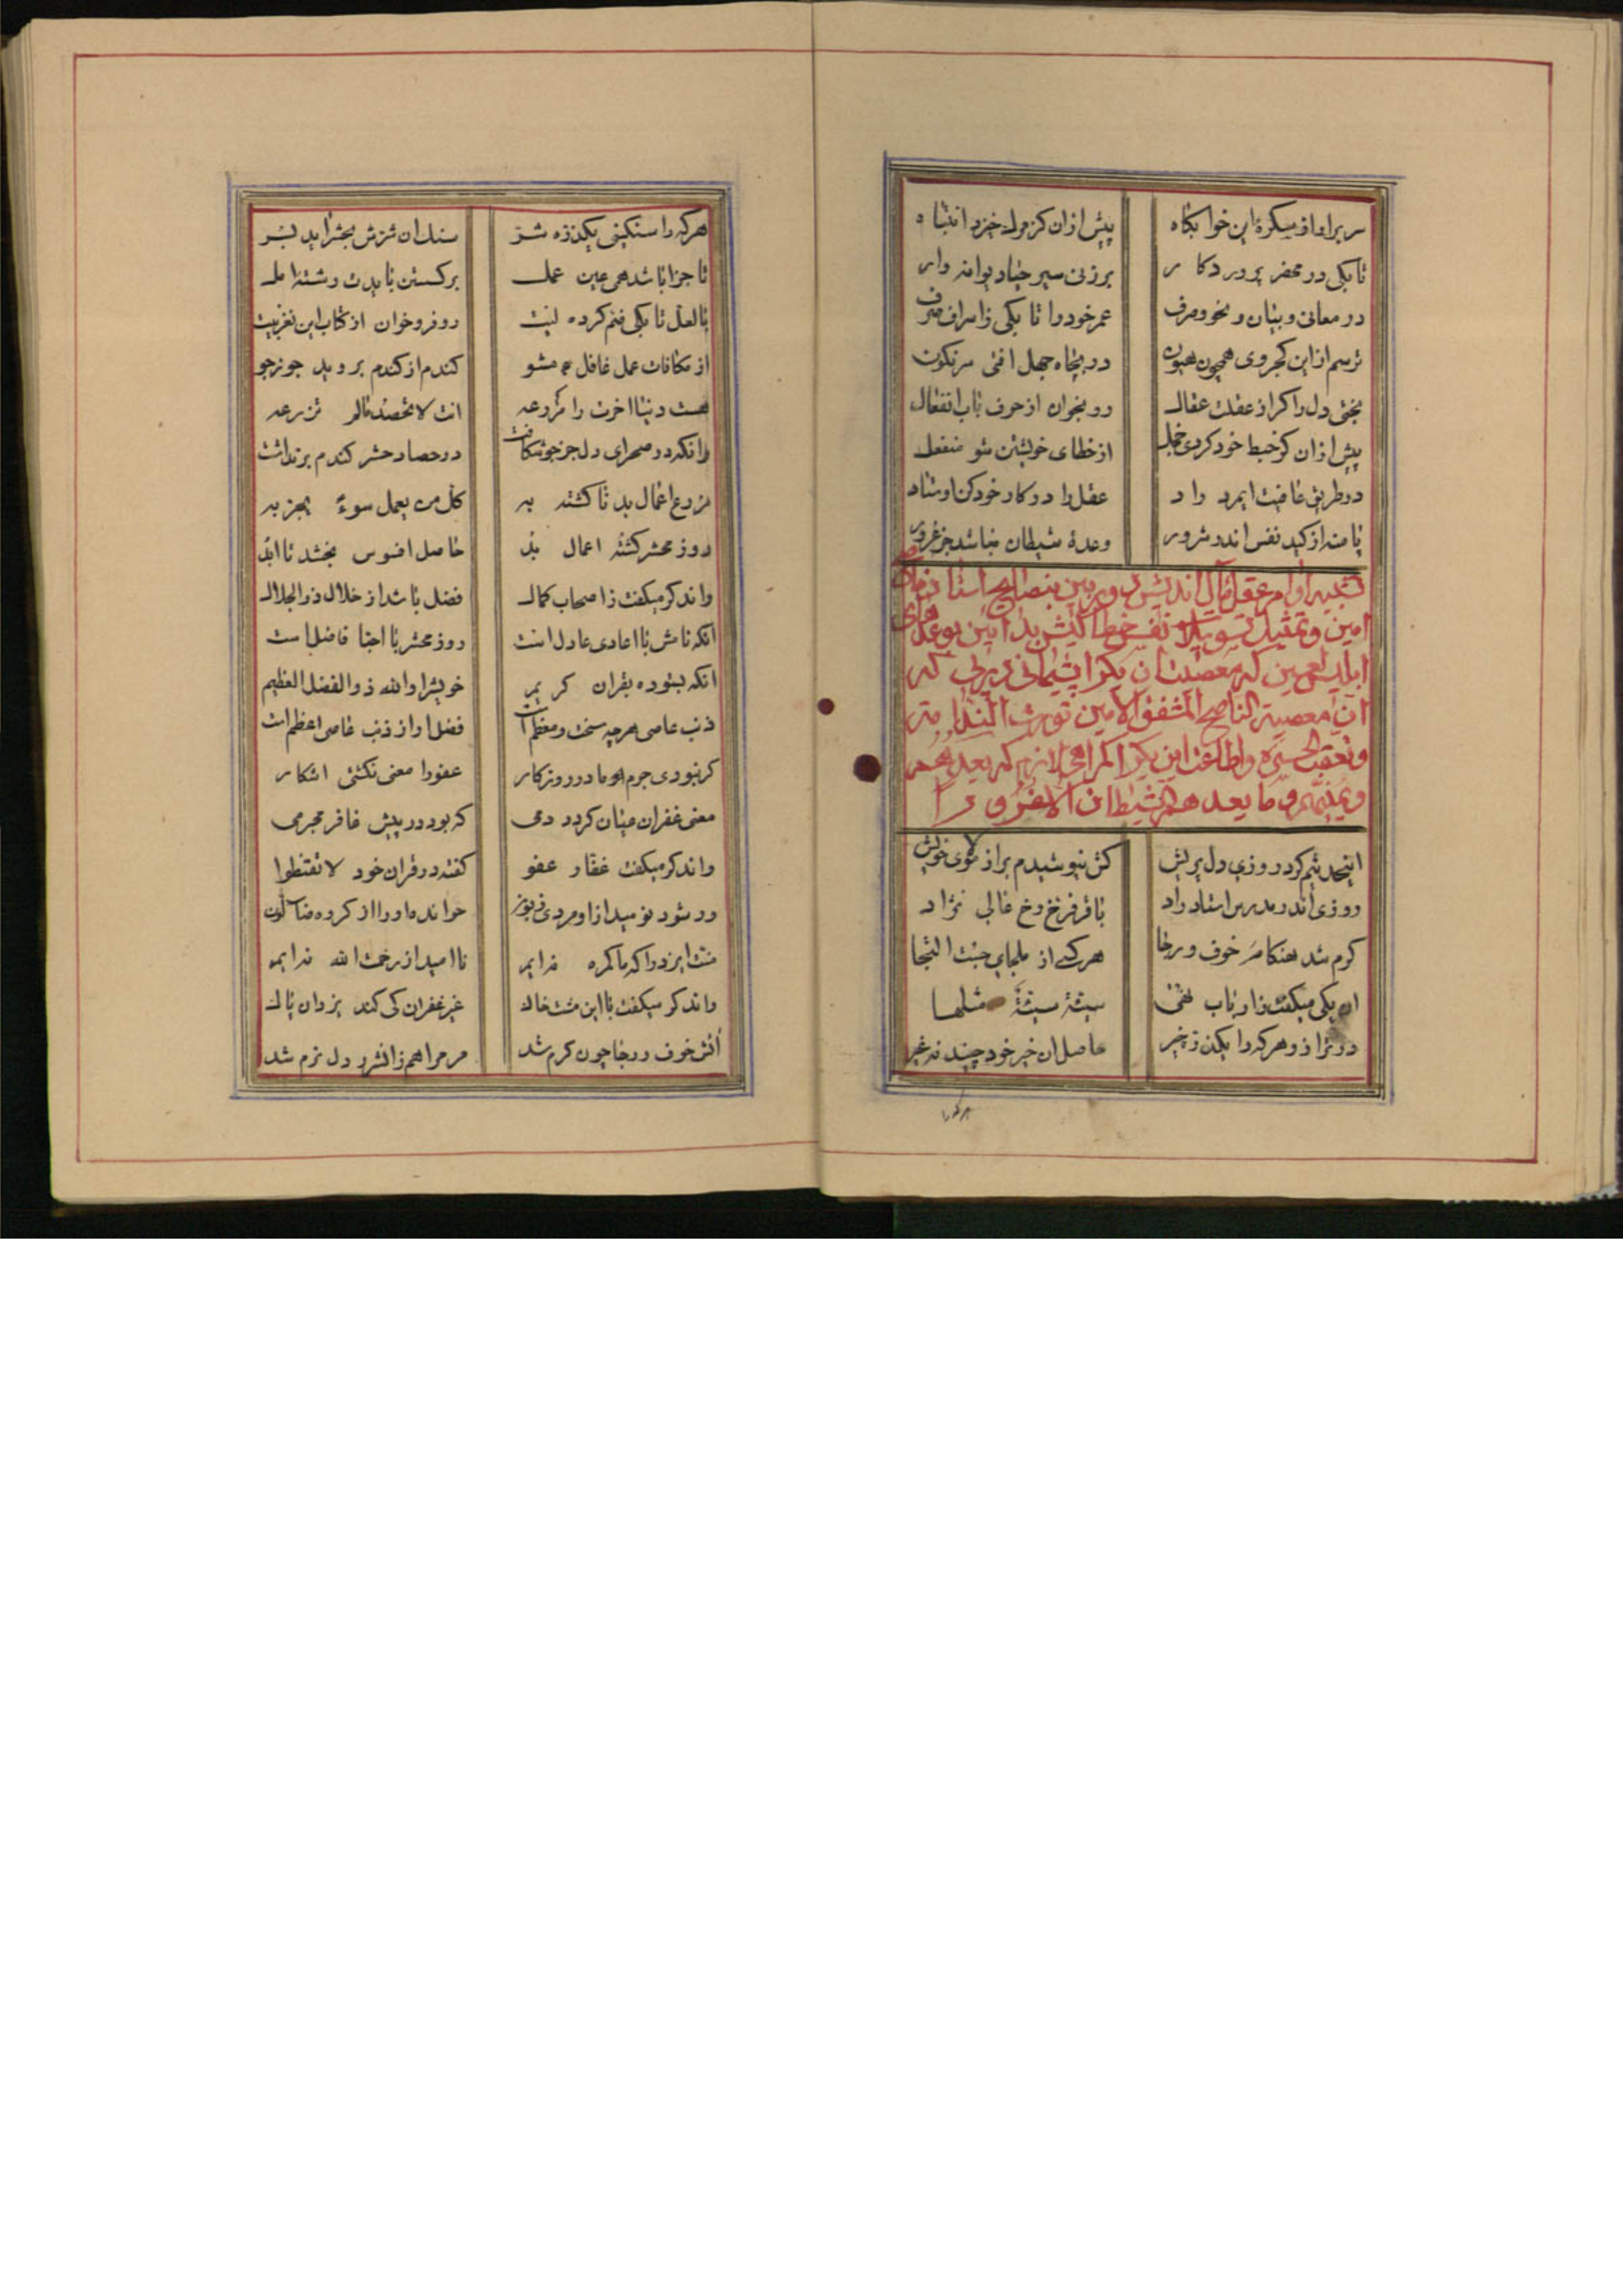 سر برار از سکرة این خوابکاه پیش ازان کز مرك خیزد انتباه
تا بکی در محضر پروردکار برزنی سیر خیاد یوانه وار
در معانی و بیان و نحو و صرف عمر خود را تا بکی زاسراف صرف
ترسم از این کجروی همچون هیون در بچاه جهل افتی سرنکون
بختی دل را کر از عقلت عقال رو بخوان از حرف باب انفعال
پیش ازان کز خبط خود کردی خجل از خطای خویشتن شو منفعل
در طریق عافیت ایمرد راد عقل را در کار خود کن اوستاد
پا منه از کید نفس اندر شرور وعدة شیطان نباشد جز غرور
تنبیه اوامر عقل مآل اندیش دوربین بنصایح استاد
امین و تمثیل تسویلات نفس خطا کیش بدآیین بوعدهای
ابلیس لعین که معصیت ان یکرا پشیمانی در پی که
ان معصیة الناصح المشفق الامین تورث الندامة
وتعقب الحسرة واطاعت این یکرا کمراهی لازم که یعدهم
ویمنیهم وما یعدهم الشیطان الا غرورا
اینچنینم کرد روزی دل پریش کش نپوشیدم براز شوی خویش
روزی اندر مدرس استاد راد با فر فرخ رخ عالی نژاد
کرم شد هنکامهٔ خوف و رجا هر کسی از ملجای جست التجا
ان یکی میکفت زارباب نهی سیئة سیئة مثلها
در ترازو هر که را یکذره خیر حاصل ان خیر خود چیند نه غیر
هر کورا
هر که را سنکینی یکذره شر سنك ان شرش بحشر اید بسر
تا جزا باشد همی عین عمل برکسستن بایدت رشته امل
با لعل تا بکی ضم کرده لیت رو فرو خوان از کتاب این نغز بیت
از مکافات عمل غافل مشو کندم از کندم بروید جو ز جو
هست دنیا اخرت را مزرعه انت لا تحصد مالم تزرعه
وانکه در صحرای دل جز جو نکاشت در حصاد حشر کندم برنداشت
مزرع اعمال بد تا کشته به کل من یعمل سوء یجز به
روز محشر کشتهٔ اعمال بد حاصل افسوس بخشد تا ابد
واندکر میکفت زاصحاب کمال فضل باشد از خلال ذوالجلال
انکه نامش با اعادی عادل است روز محشر با احبا فاضل است
انکه بستوده بقران کریم خویش را والله ذوالفضل العظیم
ذنب عاصی هر چه سخت و معظم است فضل او از ذنب عاصی اعظم است
کر نبودی جرم ما در روزکار عفو را معنی نکشتی اشکار
معنی غفران عیان کردد دمی که بود در پیش غافر مجرمی
واندکر میکفت غفار عفو کفته در قران خود لا تقنطوا
ور شود نومید از او مردی زبون خوانده او را از کروه ضالون
منت ایزد را که ما کمره نه ایم نا امید از رحمت الله نه ایم
واندکر میکفت با این مشت خاك غیر غفران کی کند یزدان پاك
اتش خوف و رجا چون کرم شد مر مرا هم زاتش دل نرم شد